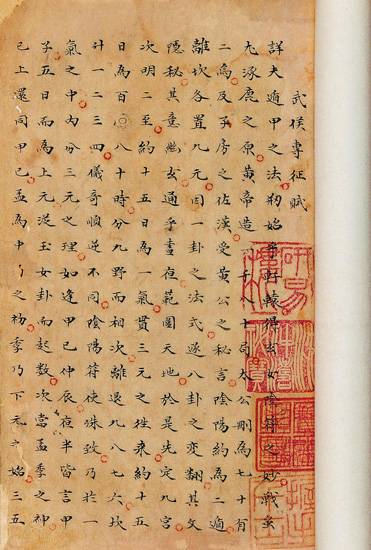 武侯專征賦
詳夫遁甲之法刱始乎軒轅得玄女陰符之妙戰蚩
尤涿鹿之原黄帝造一千八十局太公刪為七十有
二為及子房之佐漢受黄公之秘言陰陽約為二遁
離坎各置九元因一卦之法式遂八卦之變翻其文
隱秘其意幽玄通乎晝夜範圍天地於是先定九宮
次明二至約十五日為一氣貫三元之往來約十五
日為百八十時分九野而相次離退九八七六坎
廾一二三四儀奇順逆不同陰陽符使殊致乃於一
氣之中内分三元之理如逢甲己仲辰夜半皆言甲
子五日而為上元泥玉女卦而起数次當孟季之神
已上還同甲己孟為中之初季乃下元之始三五